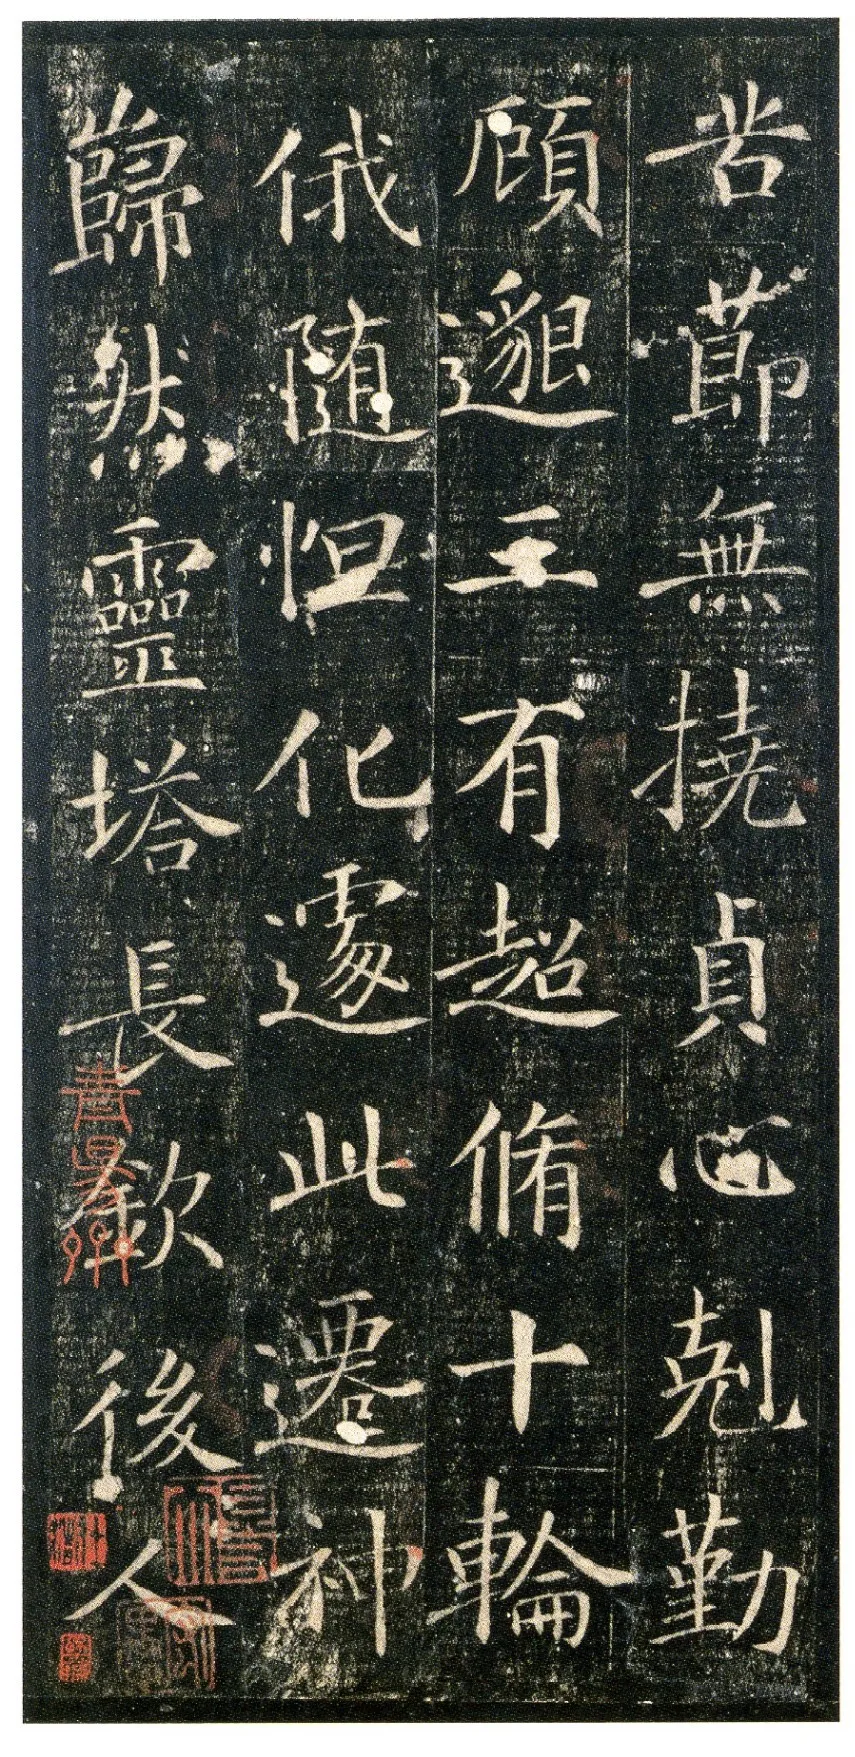 苦節無撓貞心剋勤
顧邈三有超脩十輪
俄随怛化遽此遷神
巋然靈塔長欽後人